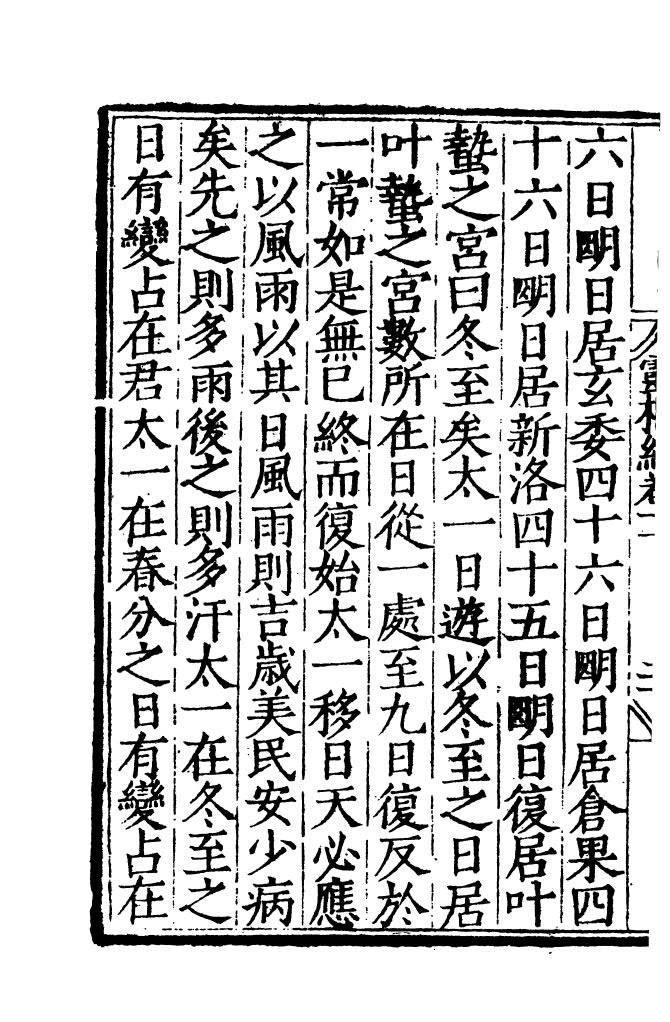 六日朙日居玄委四十六日朙日居倉果四
十六日朙日居新洛四十五日朙日復居叶
蟄之宮曰冬至矣太一日遊以冬至之日居
叶蟄之宮數所在日從一處至九日復反於
一常如是無已終而復始太一移日天必應
之以風雨以其日風雨則吉歲美民安少病
矣先之則多雨後之則多汗太一在冬至之
日有變占在君太一在春分之日有變占在